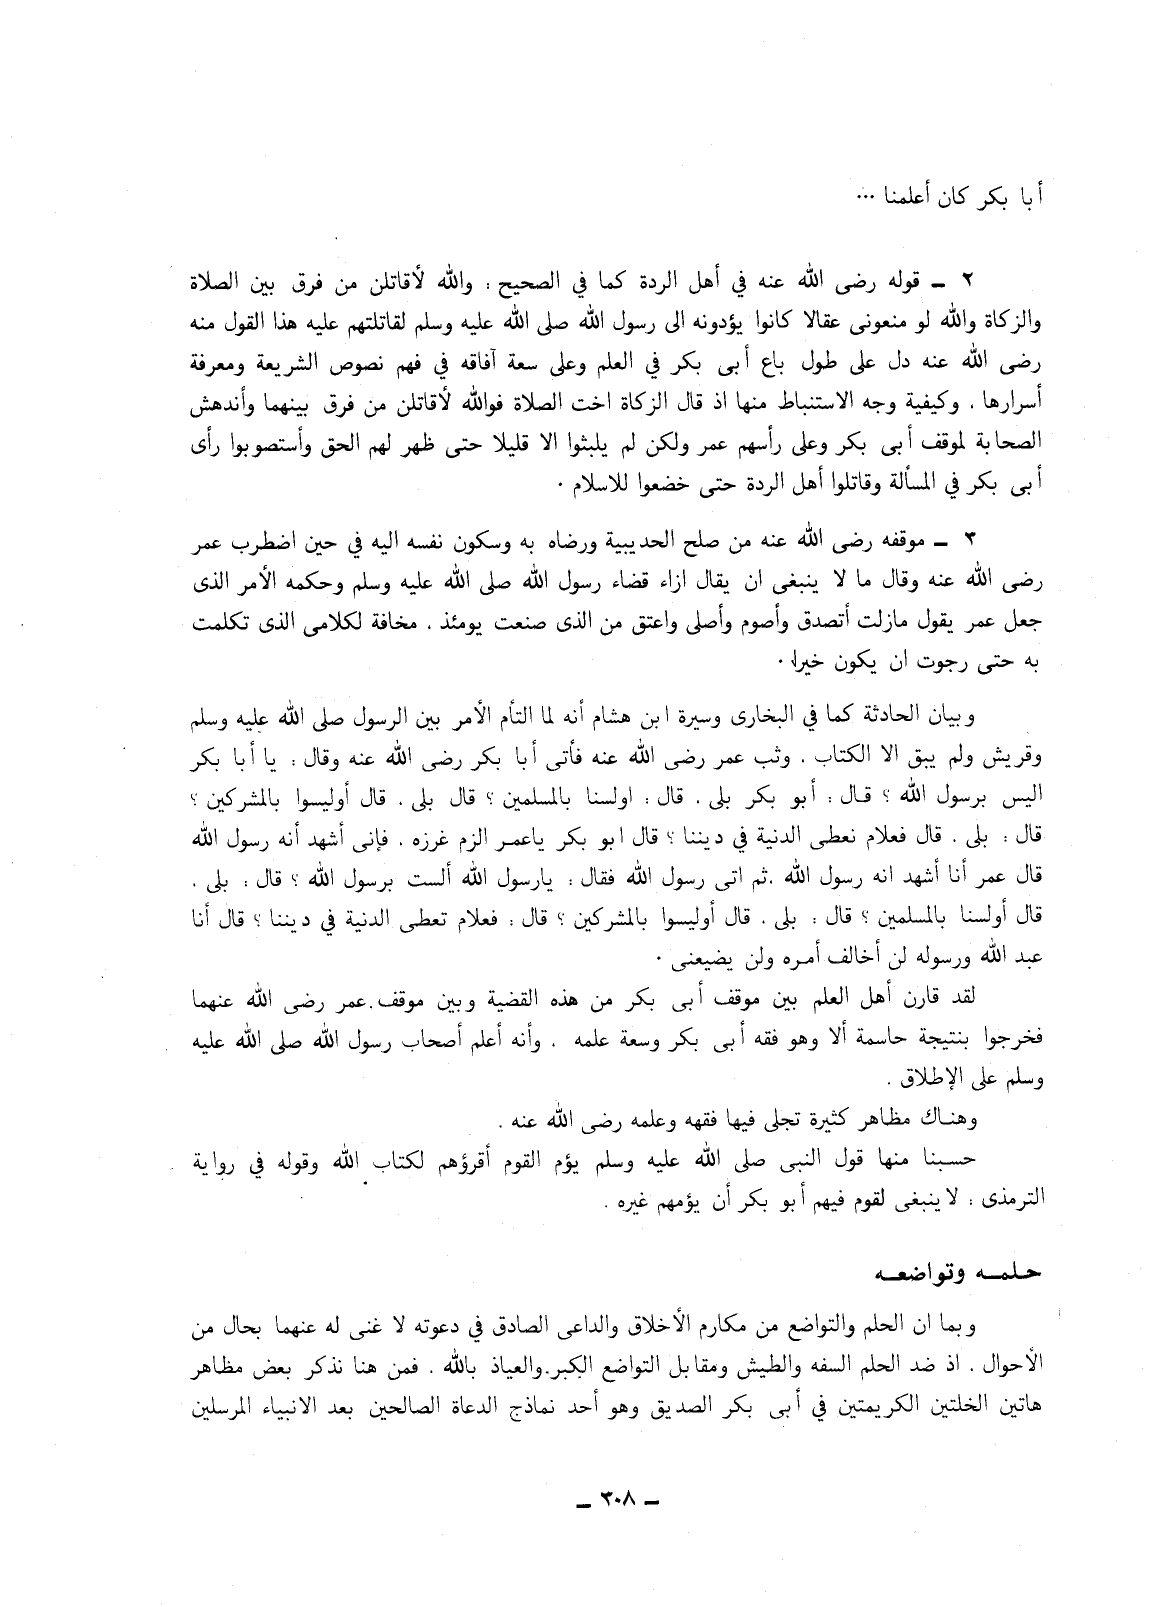 أبا بكر كان أعلمنا ...
٢ ــ قوله رضى الله عنه في أهل الردة كما في الصحيح : والله لأقاتلن من فرق بين الصلاة
والزكاة والله لو منعونى عقالا كانوا يؤدونه الى رسول الله صلى الله عليه وسلم لقاتلتهم عليه هذا القول منه
رضى الله عنه دل على طول باع أبى بكر في العلم وعلى سعة آفاقه في فهم نصوص الشريعة ومعرفة
أسرارها . وكيفية وجه الاستنباط منها اذ قال الزكاة اخت الصلاة فوالله لأقاتلن من فرق بينهما وأندهش
الصحابة لموقف أبى بكر وعلى رأسهم عمر ولكن لم يلبثوا الا قليلا حتى ظهر لهم الحق وأستصوبوا رأى
أبى بكر في المسألة وقاتلوا أهل الردة حتى خضعوا للاسلام .
٣ ــ موقفه رضى الله عنه من صلح الحديبية ورضاه به وسكون نفسه اليه في حين اضطرب عمر
رضى الله عنه وقال ما لا ينبغى ان يقال ازاء قضاء رسول الله صلى الله عليه وسلم وحكمه الأمر الذى
جعل عمر يقول مازلت أتصدق وأصوم وأصلى واعتق من الذى صنعت يومئذ . مخافة لكلامى الذى تكلمت
به حتى رجوت ان يكون خيرا .
وبيان الحادثة كما في البخارى وسيرة ابن هشام أنه لما التأم الأمر بين الرسول صلى الله عليه وسلم
وقريش ولم يبق الا الكتاب . وثب عمر رضى الله عنه فأتى أبا بكر رضى الله عنه وقال : يا أبا بكر
اليس برسول الله ؟ قال : أبو بكر بلى . قال : اولسنا بالمسلمين ؟ قال بلى . قال أوليسوا بالمشركين ؟
قال : بلى . قال فعلام نعطى الدنية في ديننا ؟ قال ابو بكر ياعمر الزم غرزه . فإنى أشهد أنه رسول الله
قال عمر أنا أشهد انه رسول الله .ثم اتى رسول الله فقال : يارسول الله ألست برسول الله ؟ قال : بلى .
قال أولسنا بالمسلمين ؟ قال : بلى . قال أوليسوا بالمشركين ؟ قال : فعلام تعطى الدنية في ديننا ؟ قال أنا
عبد الله ورسوله لن أخالف أمره ولن يضيعنى .
لقد قارن أهل العلم بين موقف أبى بكر من هذه القضية وبين موقف.عمر رضى الله عنهما
فخرجوا بنتيجة حاسمة ألا وهو فقه أبى بكر وسعة علمه . وأنه أعلم أصحاب رسول الله صلى الله عليه
وسلم على الإطلاق .
وهناك مظاهر كثيرة تجلى فيها فقهه وعلمه رضى الله عنه .
حسبنا منها قول النبى صلى الله عليه وسلم يؤم القوم أقرؤهم لكتاب الله وقوله في رواية
الترمذى : لا ينبغى لقوم فيهم أبو بكر أن يؤمهم غيره .
حلمه وتواضعه
وبما ان الحلم والتواضع من مكارم الأخلاق والداعى الصادق في دعوته لا غنى له عنهما بحال من
الأحوال . اذ ضد الحلم السفه والطيش ومقابل التواضع الكبر.والعياذ بالله . فمن هنا نذكر بعض مظاهر
هاتين الخلتين الكريمتين في أبى بكر الصديق وهو أحد نماذج الدعاة الصالحين بعد الانبياء المرسلين
ــ ٣٠٨ ــ